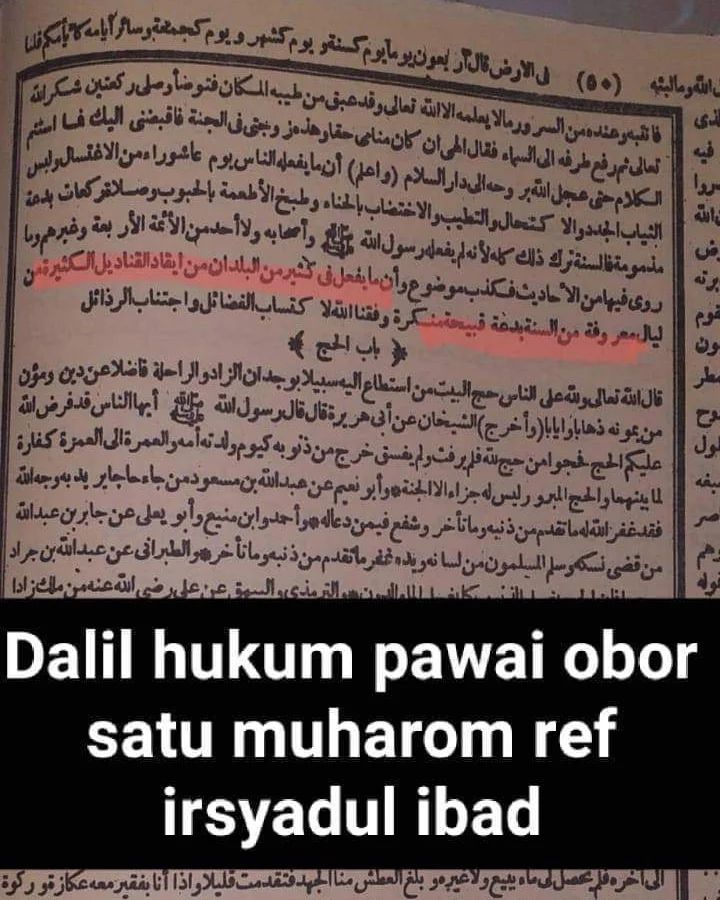 لى الارض قال أر بعون يوما يوم كسنة و يوم كشهر و يوم كجمعة وسائر أيامه كأيامكم قلنا
(٥٠)
فانتبه وعنده من السرور مالا يعلمه الا الله تعالى وقد عبق من طيبه المكان فتوضأ وصلى ركعتين شكر الله
تعالى ثم رفع طرفه الى السماء فقال الهى ان كان منامى حقا وهذه زوجتى فى الجنة فاقبضنى اليك فما استتم
الكلام حتى عجل الله بروحه الى دار السلام (واعلم) أن ما يفعله الناس يوم عاشوراء من الاغتسال ولبس
الثياب الجدد والا كتحال والتطيب والاختضاب بالحناء وطبخ الأطعمة بالحبوب وصلاة ركعات بدعة
مذمومة فالسنة ترك ذلك كله لأنه لم يفعله رسول الله ﷺ وأصحابه ولا أحد من الأئمة الأر بعة وغيرهم وما
روى فيها من الأحاديث فكذب موضوع وأن ما يفعل فى كثير من البلدان من ايقاد القناديل الكثيرة فى
ليال معروفة من السنة بدعة قبيحة منكرة وفقنا الله لا كتساب الفضائل واجتناب الرذائل
﴿ باب الحج ﴾
قال الله تعالى ولله على الناس حج البيت من استطاع اليه سبيلا بوجدان الزاد والراحلة فاضلا عن دين ومؤن
من يمونه ذهابا وايابا (وأخرج) الشيخان عن أبى هريرة قال قال رسول الله ﷺ أيها الناس قد فرض الله
عليكم الحج فحجوا من حج لله فلم يرفث ولم يفسق خرج من ذنوبه كيوم ولدته أمه والعمرة الى العمرة كفارة
لما بينهما والحج المبرور ليس له جزاء الا الجنة * وأبو نعيم عن عبد الله بن مسعود من جاء حاجا يريد به وجه الله
فقد غفر الله له ما تقدم من ذنبه وما تأخر وشفع فيمن دعا له * وأحمد وابن منيع وأبو يعلى عن جابر بن عبد الله
من قضى نسكه وسلم المسلمون من لسانه ويده غفر ما تقدم من ذنبه وما تأخر * والطبرانى عن عبد الله بن جراد
والترمذى والبيهقى عن على رضى الله عنه من ملك زادا
Dalil hukum pawai obor
satu muharom ref
irsyadul ibad
الى آخره فلم يحصل لى ماء ببيع ولا غيره و بلغ العطش منا الجهد فتقدمت قليلا واذا أنا بفقير معه عكازة و ركوة